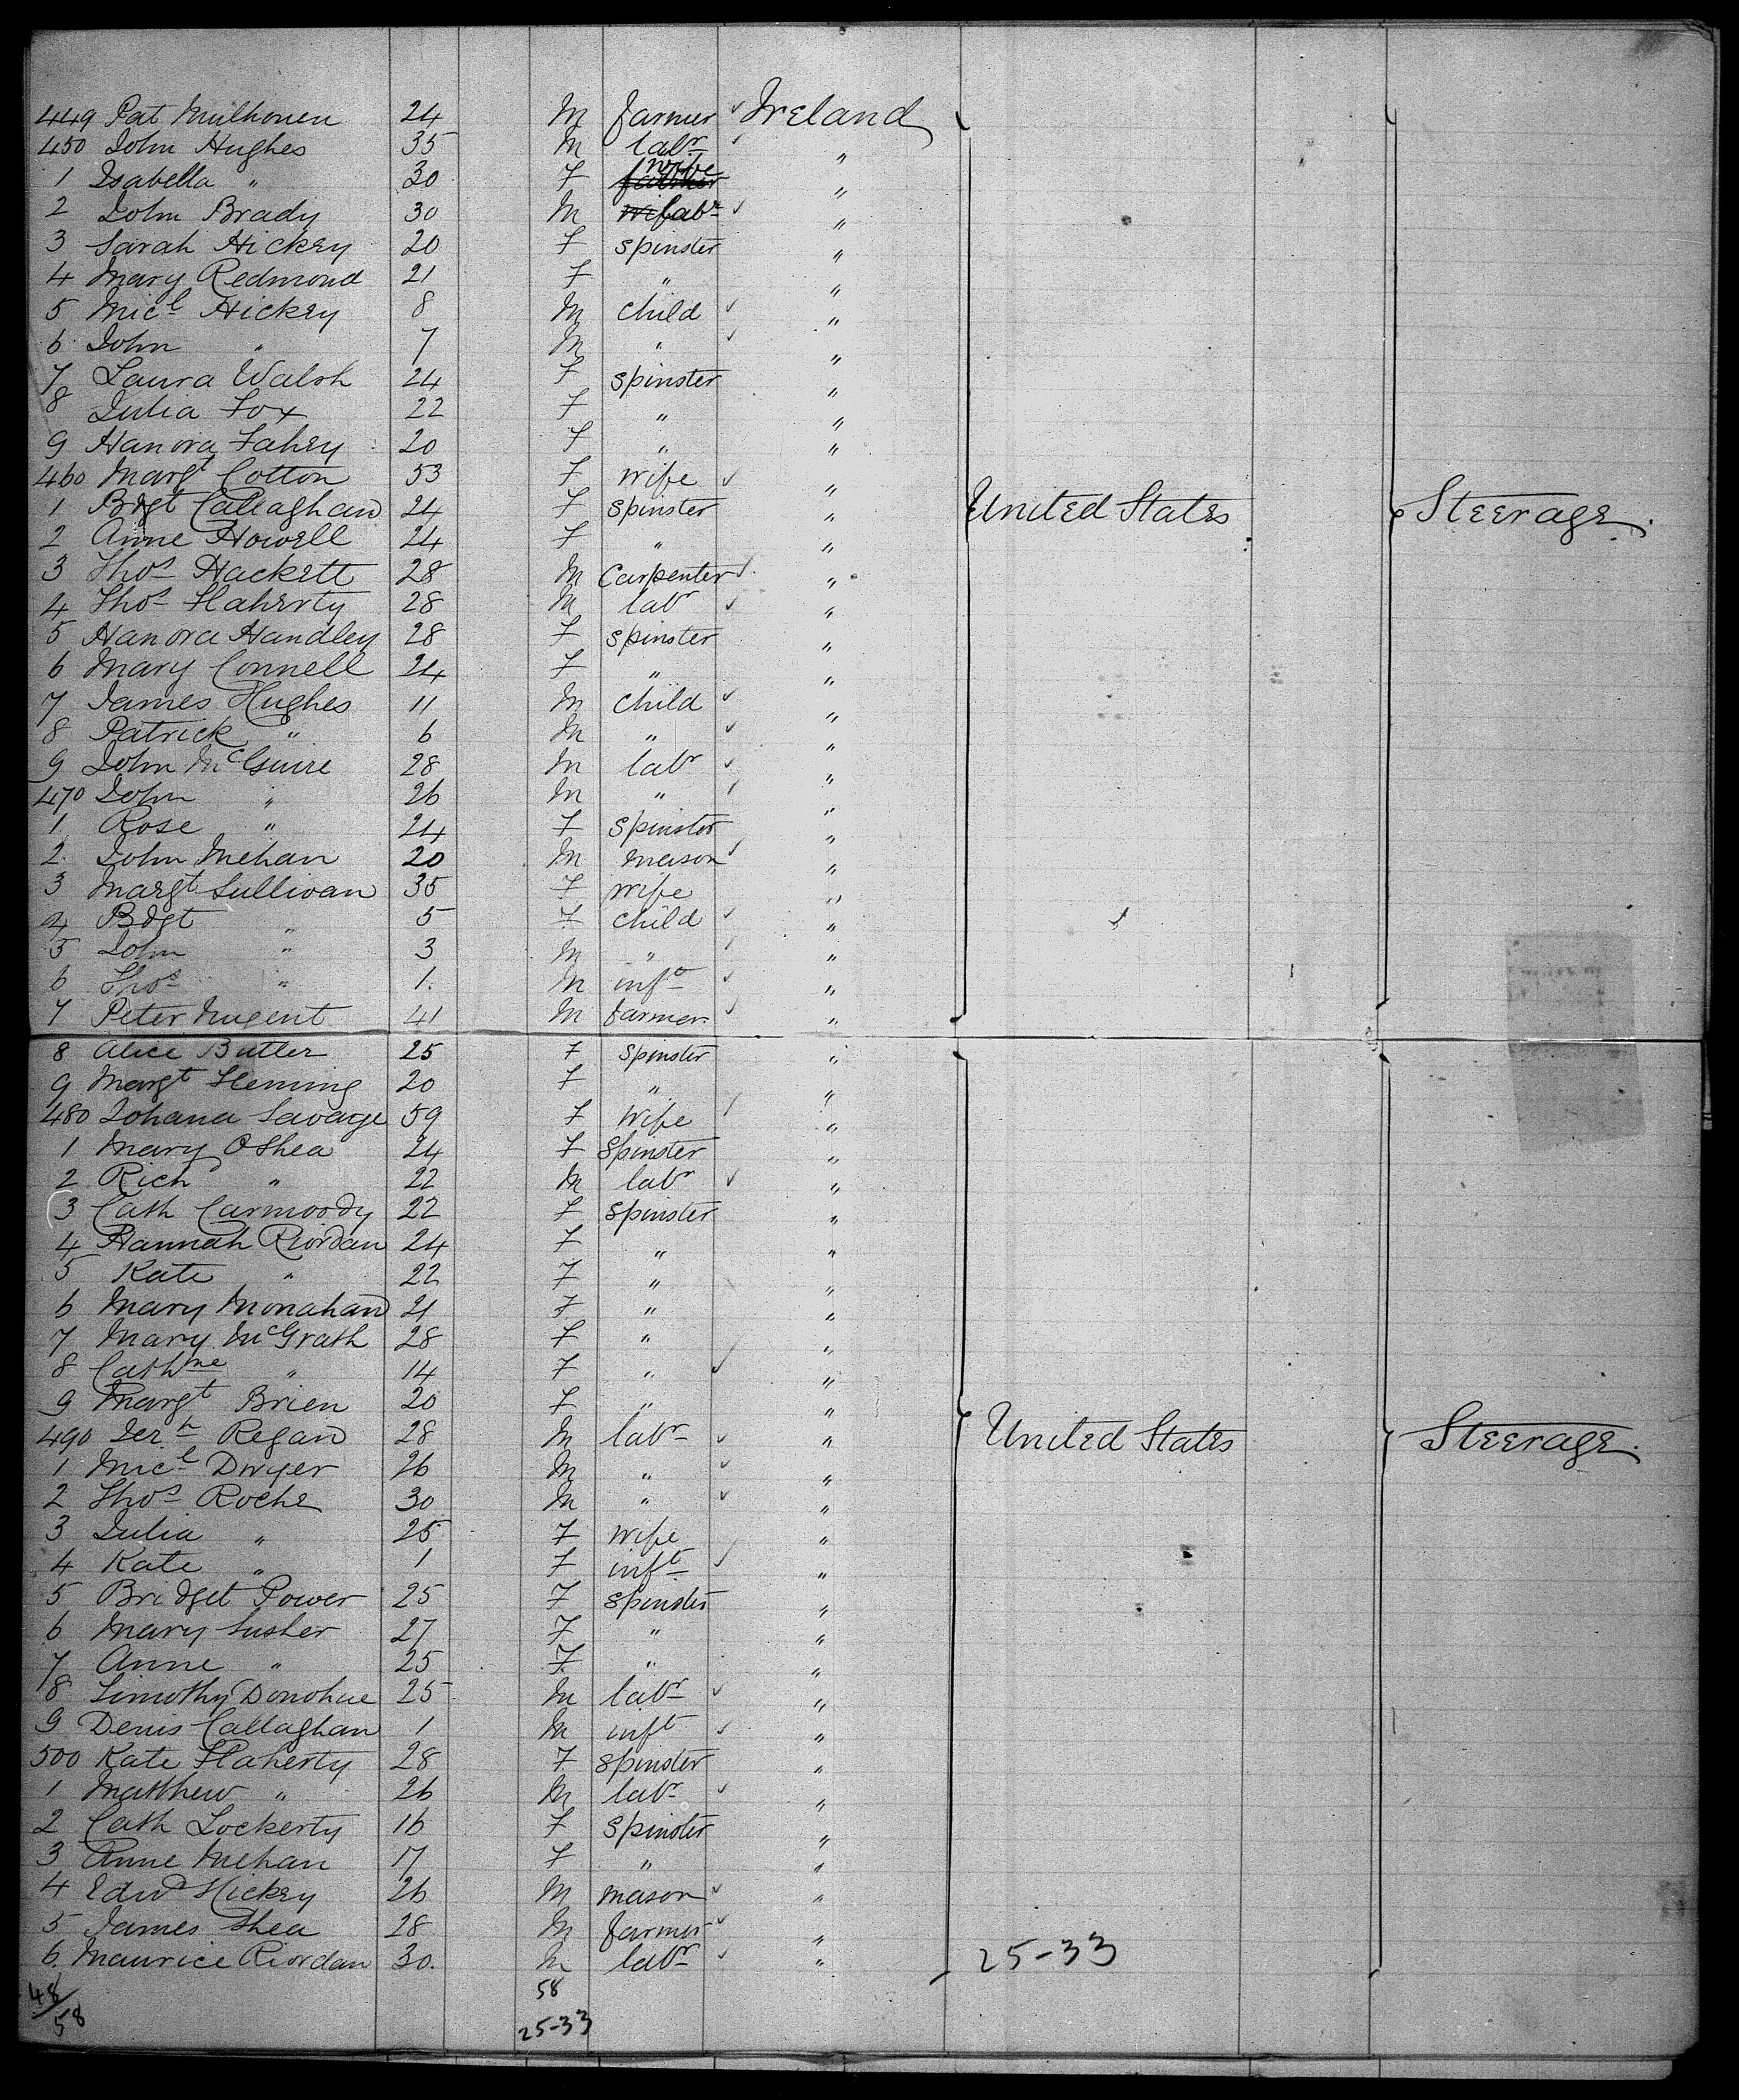 449 Pat Mulhonen 24 M farmer Ireland
450 John Hughes 35 M labr "
1 Isabella " 30 F wife "
2 John Brady 30 M labr "
3 Sarah Hickey 20 F spinster "
4 Mary Redmond 21 F " "
5 Micl Hickey 8 M child "
6 John " 7 M " "
7 Laura Walsh 24 F spinster "
8 Julia Fox 22 F " "
9 Hanora Fahey 20 F " "
460 Margt Cotton 53 F wife "
1 Bdgt Callaghan 24 F spinster " United States Steerage.
2 Anne Howell 24 F " "
3 Thos Hackett 28 M Carpenter "
4 Thos Flaherty 28 M labr "
5 Hanora Handley 28 F spinster "
6 Mary Connell 24 F " "
7 James Hughes 11 M child "
8 Patrick " 6 M " "
9 John McGuire 28 M labr "
470 John " 26 M " "
1 Rose " 24 F spinster "
2 John Mehan 20 M mason "
3 Margt Sullivan 35 F wife "
4 Bdgt " 5 F child "
5 John " 3 M " "
6 Thos " 1. M inft "
7 Peter Nugent 41 M farmer. "
8 Alice Butler 25 F spinster "
9 Margt Fleming 20 F " "
480 Johana Savage 59 F wife "
1 Mary OShea 24 F spinster "
2 Rich " 22 M labr "
3 Cath Carmoody 22 F spinster "
4 Hannah Riordan 24 F " "
5 Kate " 22 F " "
6 Mary Monahan 21 F " "
7 Mary McGrath 28 F " "
8 Cathne " 14 F " "
9 Margt Brien 20 F " "
490 Jerh Regan 28 M labr " United States Steerage.
1 Micl Dwyer 26 M " "
2 Thos Roche 30 M " "
3 Julia " 25 F wife "
4 Kate " 1 F inft "
5 Bridget Power 25 F spinster "
6 Mary Lusher 27 F " "
7 Anne " 25 F " "
8 Timothy Donohue 25 M labr "
9 Denis Callaghan 1 M inft "
500 Kate Flaherty 28 F spinster "
1 Matthew " 26 M labr "
2 Cath Lockerty 16 F spinster "
3 Anne Mehan 17 F " "
4 Edwd Hickey 26 M mason "
5 James Shea 28 M farmer "
6. Maurice Riordan 30. M labr " 25-33
48/58 58
25-33